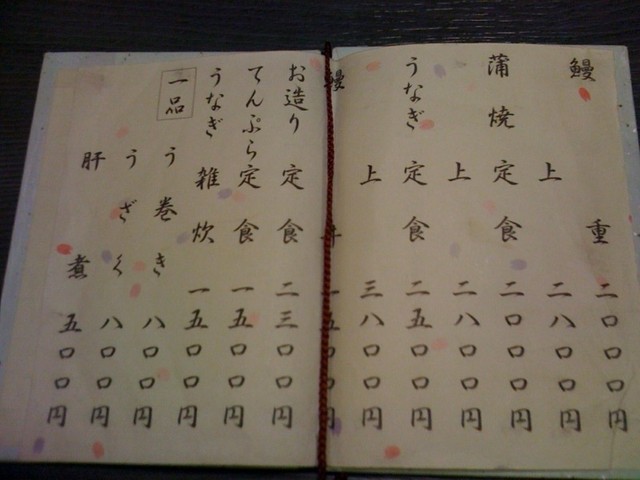 鰻重 二〇〇〇円
上 二八〇〇円
蒲焼定食 二〇〇〇円
上 二八〇〇円
うなぎ定食 二五〇〇円
上 三八〇〇円
鰻丼 一五〇〇円
お造り定食 二三〇〇円
てんぷら定食 一五〇〇円
うなぎ雑炊 一五〇〇円
一品
う巻き 八〇〇円
うざく 八〇〇円
肝煮 五〇〇円